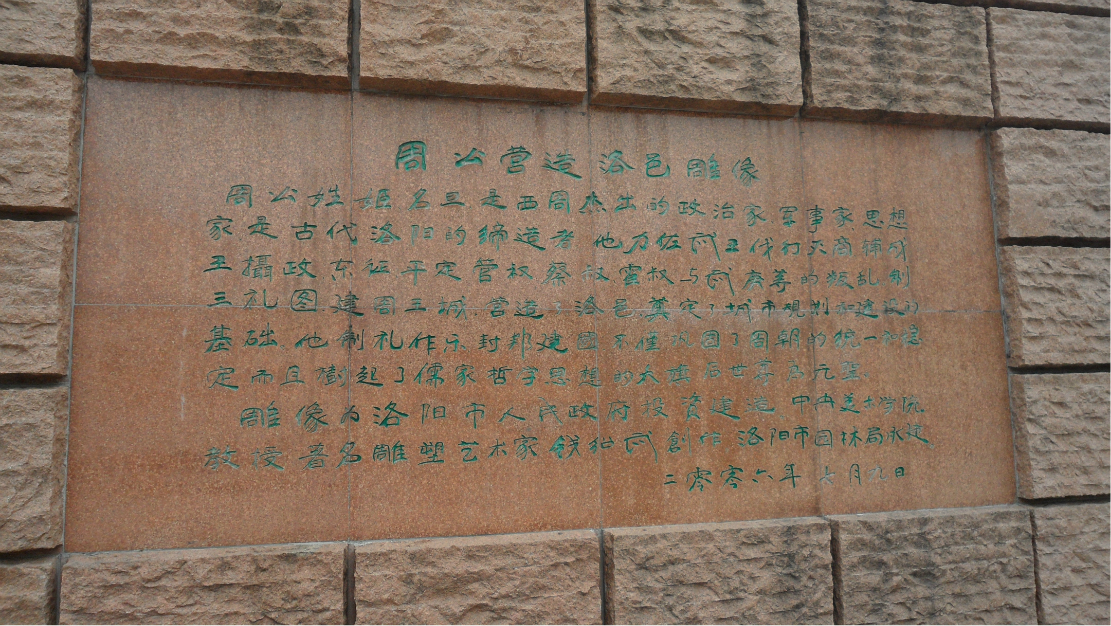 周公营造洛邑雕像
周公姓姬名三是西周杰出的政治家军事家思想
家是古代洛阳的缔造者他力佐武王伐纣灭商辅成
王攝政东征平定管叔蔡叔霍叔与武庚等的叛乱制
三礼图建周三城营造了洛邑奠定了城市规划和建设的
基础他制礼作乐封邦建国不僅巩固了周朝的统一和稳
定而且樹起了儒家哲学思想的大旗后世尊为元聖
雕像为洛阳市人民政府投資建造中央美术学院
教授著名雕塑艺术家 创作洛阳市园林局承建
二零零六年七月九日